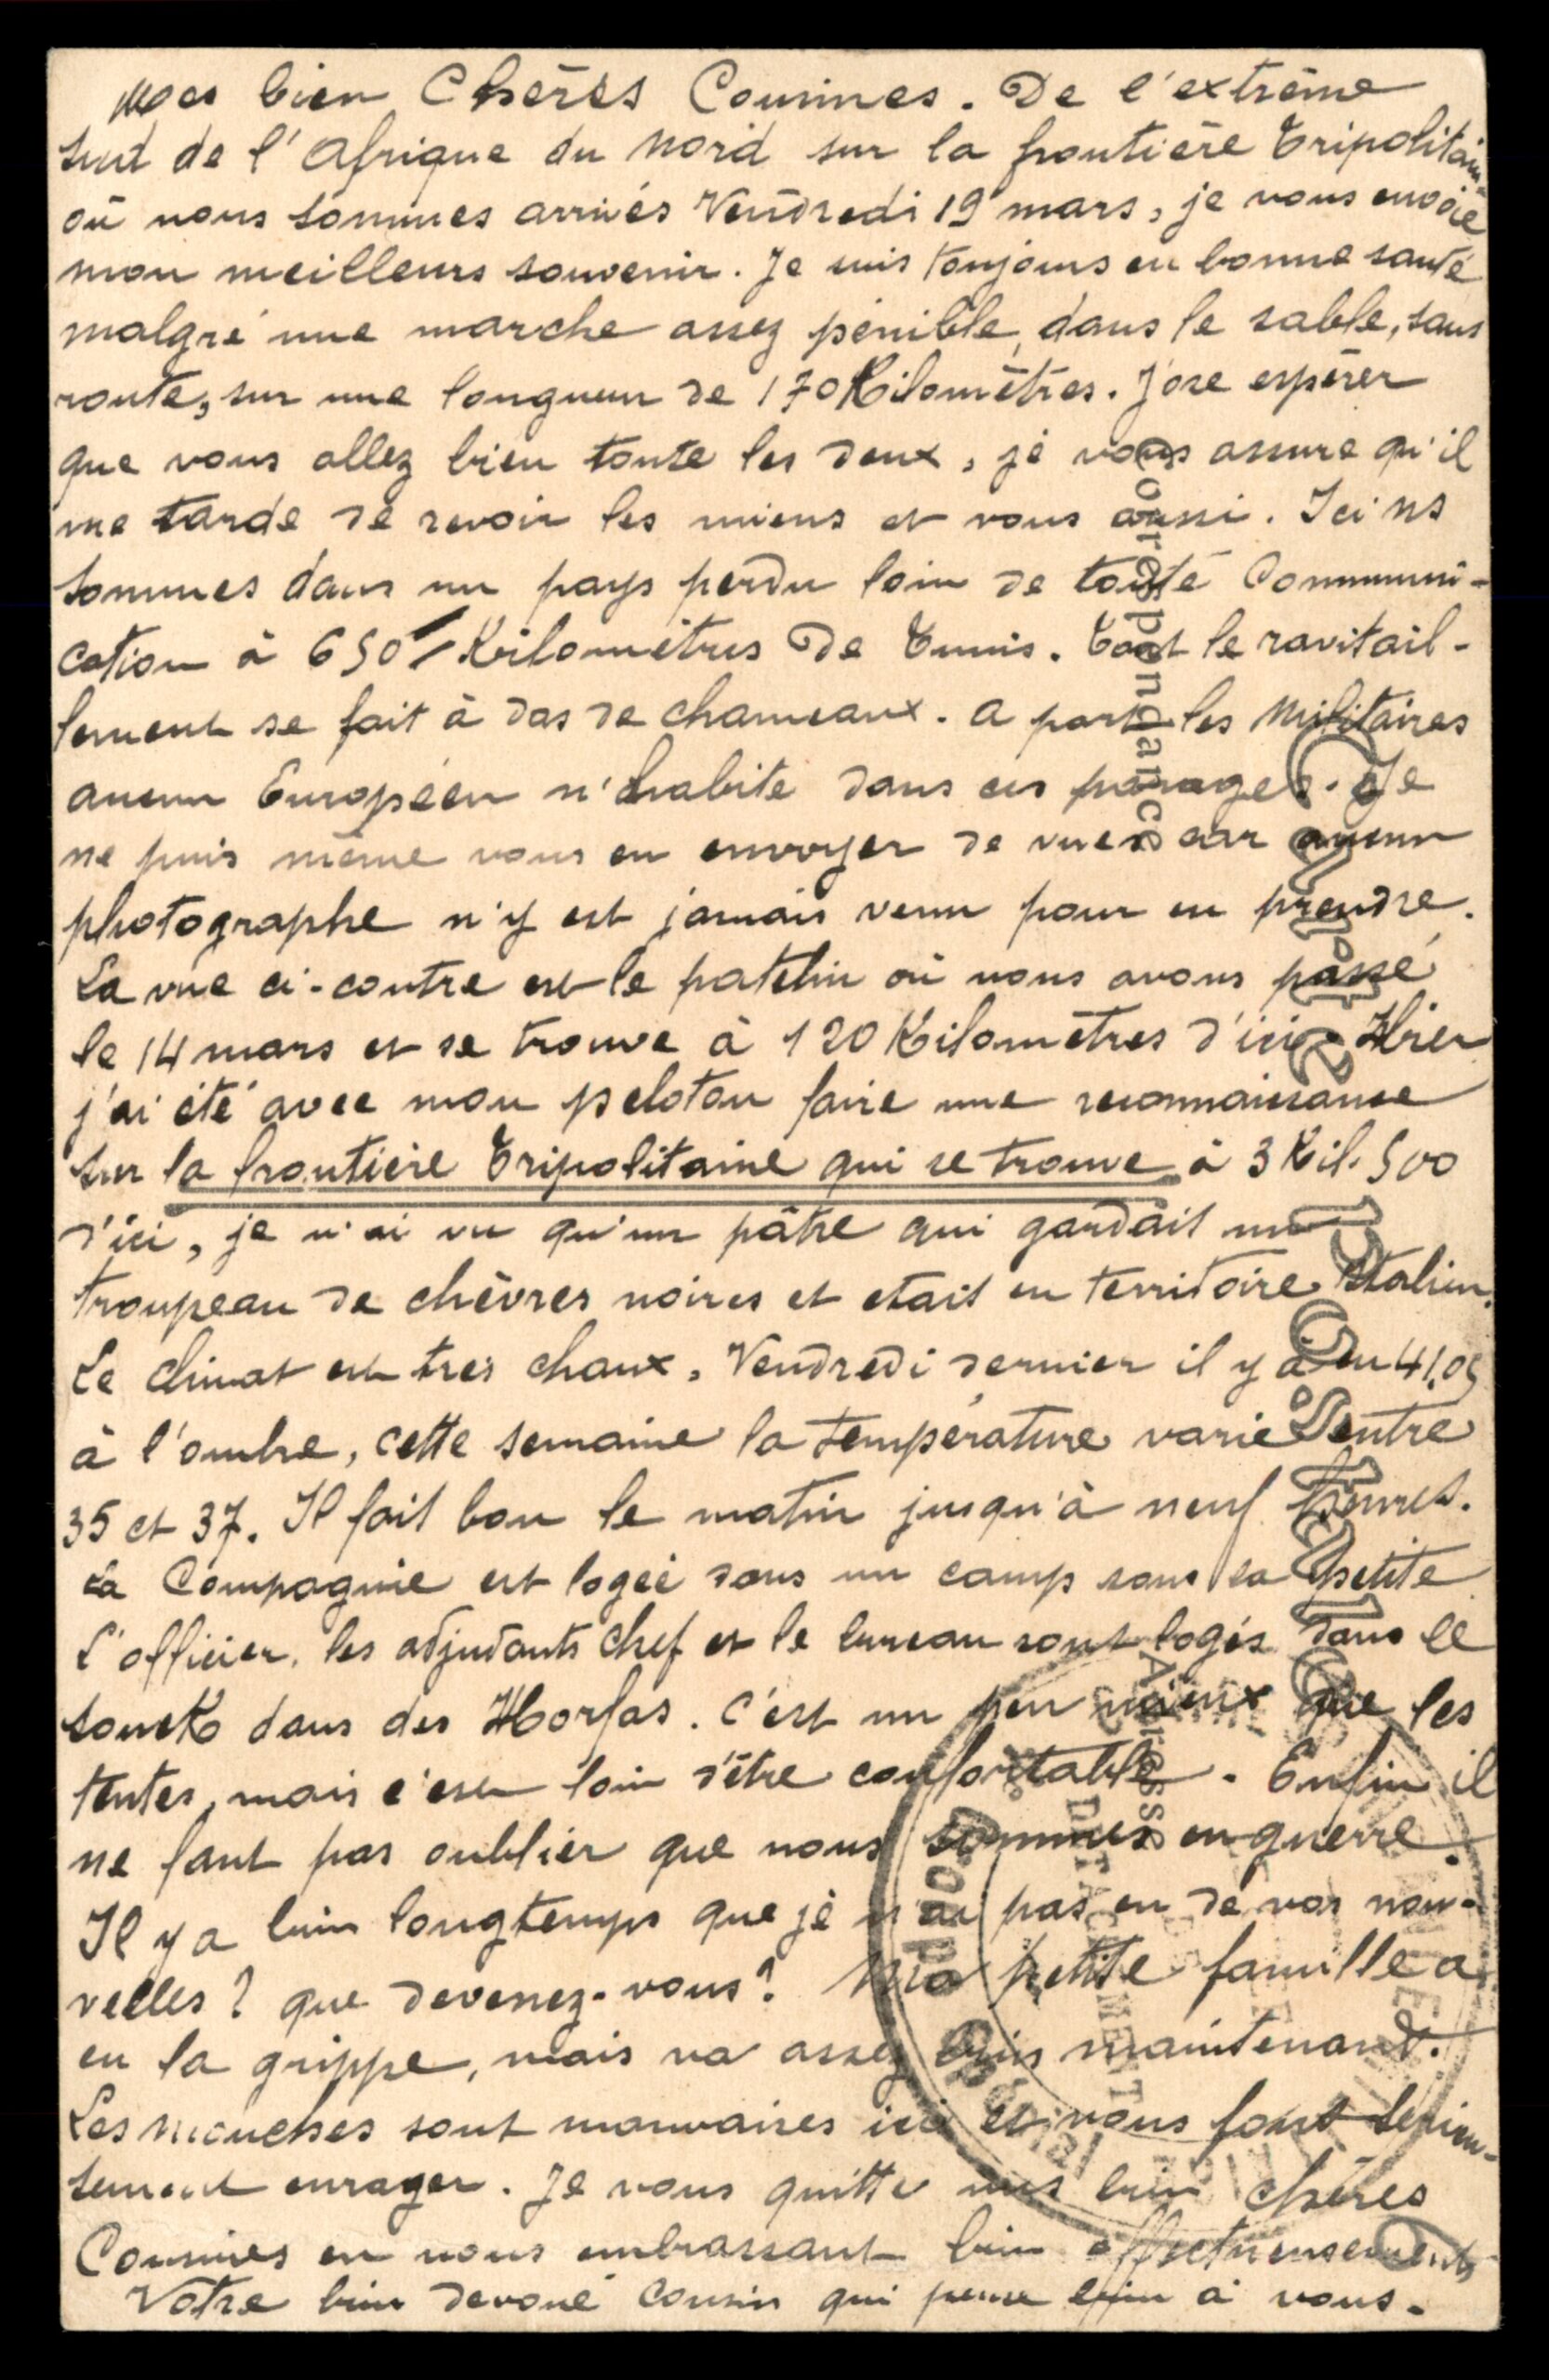 Mes bien Chères Cousines. De l'extrème
sud de l'Afrique du Nord sur la frontière Tripolitaine
où nous sommes arrivés Vendredi 19 mars, je vous envoie
mon meilleurs souvenir. Je suis toujours en bonne santé
malgré une marche assez pénible, dans le sable, sans
route, sur une longueur de 170 Kilomètres. J'ose espérer
que vous allez bien toute les deux, je vous assure qu'il
me tarde de revoir les miens et vous aussi. Ici ns
sommes dans un pays perdu loin de toute Communi-
cation à 650 Kilomètres De Tunis. Tout le ravitail-
lement se fait à das de chameaux. A part les Militaires
aucun Européen n'habite dans ces parages. Je
ne puis même vous en envoyer de vues car aucun
photographe n'y est jamais venu pour en prendre.
La vue ci-contre est le patelin où nous avons passé
le 14 mars et se trouve à 120 Kilomètres d'ici. Hier
j'ai été avec mon peloton faire une reconnaissance
sur la frontière Tripolitaine qui se trouve à 3 Kil. 500
d'ici, je n'ai vu qu'un pâtre qui gardait un
troupeau de chèvres noires et etait en territoire Italien.
Le climat est très chaux, Vendredi dernier il y a eu 41,05
à l'ombre, cette semaine la température varie entre
35 et 37. Il fait bon le matin jusqu'à neuf heures.
La Compagnie est logée dans un camp sous la petite
L'officier, les adjudants chef et le bureau sont logés dans le
souck dans des Rhorfas. C'est un peu mieux que les
tentes, mais c'est loin d'être confortable. Enfin il
ne faut pas oublier que nous sommes en guerre.
Il y a bien longtemps que je n'ai pas eu de vos nou-
velles? que devenez-vous? Ma petite famille a
eu la grippe, mais va assez bien maintenant.
Les mouches sont mauvaises ici et vous font sérieu-
sement enrager. Je vous quitte mes bien chères
Cousines en vous embrassant bien affectueusement
Votre bien dévoué Cousin qui pense bien à vous.
Correspondance
Carte Postale
Adresse